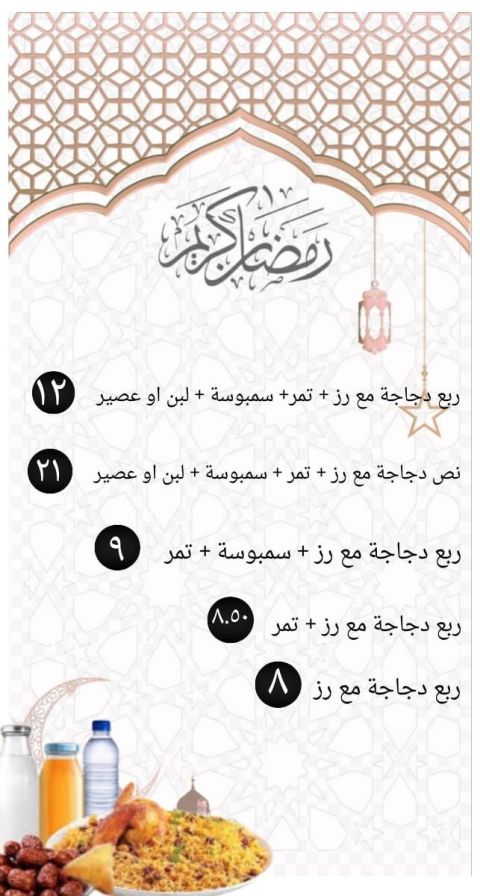 رمضان كريم
ربع دجاجة مع رز + تمر+ سمبوسة + لبن او عصير ١٢
نص دجاجة مع رز + تمر + سمبوسة + لبن او عصير ٢١
ربع دجاجة مع رز + سمبوسة + تمر ٩
ربع دجاجة مع رز + تمر ٨.٥٠
ربع دجاجة مع رز ٨